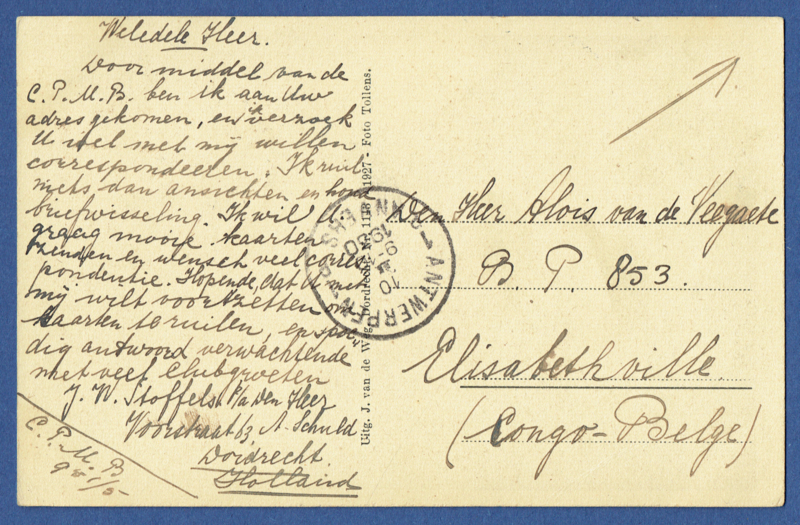 Weledele Heer.
Door middel van de
C.P.M.B. ben ik aan Uw
adres gekomen, en ik verzoek
U wel met mij willen
correspondeeren. Ik ruil
niets dan ansichten en houd
briefwisseling. Ik wil U
graag mooie kaarten
zenden en wensch veel corres
pondentie. Hopende, dat U met
mij wilt voortzetten om
kaarten te ruilen, en spoe„
dig antwoord verwachtende
met veel Clubgroeten
J. W. Stoffels p/a Den Heer
Voorstraat 63 A. Schuld
Dordrecht
Holland
C.P.M.B
Uitg. J. van de Weg, Dordrecht. No. 1927 - Foto Tollens.
ANTWERPEN 1 ANVERS 1
10
9-
1930
Den Heer Alois van de Veegaete
B. P. 853.
Elisabethville.
(Congo-Belge)